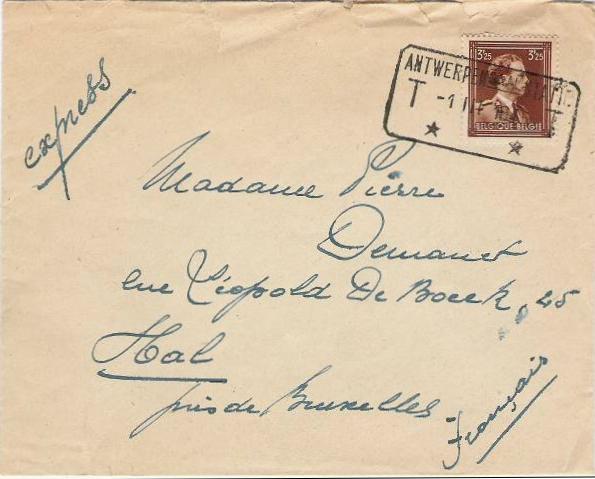 express
3F25 3F25
ANTWERPEN
T -1 T
BELGIQUE-BELGIË
Madame Pierre
Demanet
rue Léopold De Boeck, 45
Hal
près de Bruxelles
Français